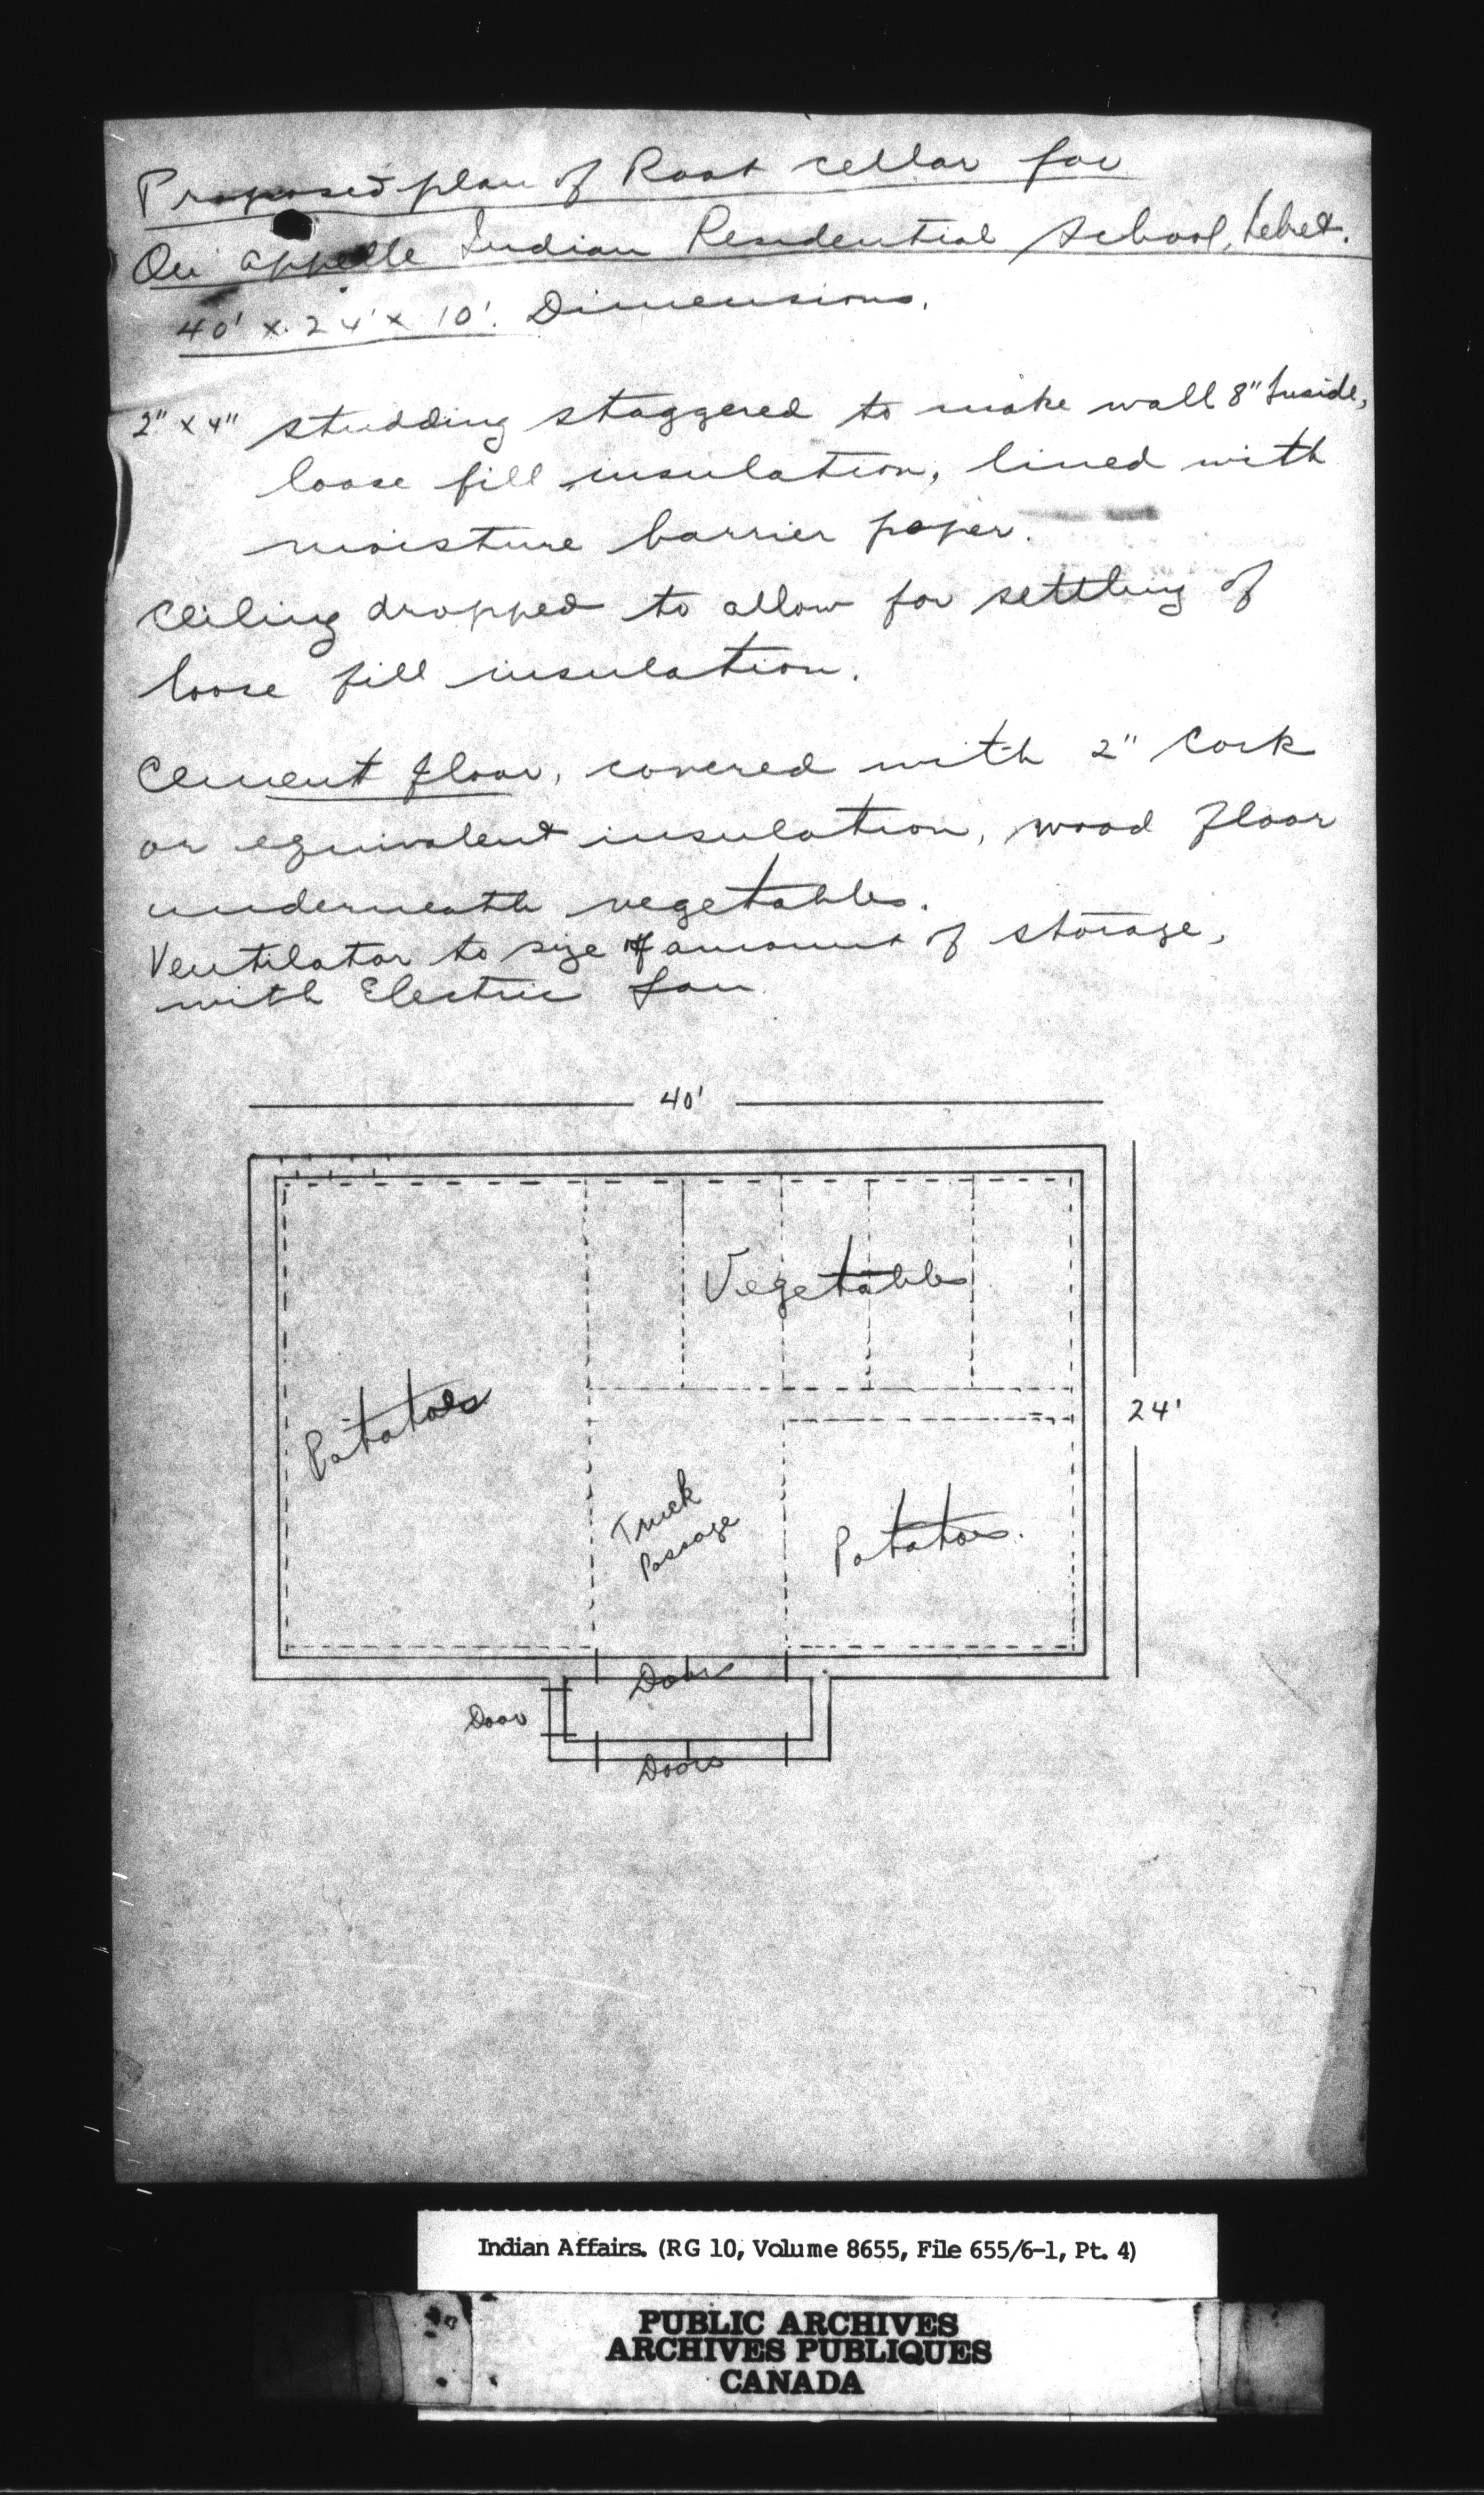 Proposed plan of Root cellar for
Qu'appelle Indian Residential School, Lebret.
40' x 24' x 10'. Dimensions.
2" x 4" studding staggered to make wall 8" Inside,
loose fill insulation, lined with
moisture barrier paper.
Ceiling dropped to allow for settling of
loose fill insulation.
Cement floor, covered with 2" Cork
or equivalent insulation, wood floor
underneath vegetables.
Ventilator to size of amount of storage,
with Electric fan
40'
Vegetables
Potatoes
24'
Truck
Passage
Potatoes.
Doors
Door
Doors
Indian Affairs. (RG 10, Volume 8655, File 655/6-1, Pt. 4)
PUBLIC ARCHIVES
ARCHIVES PUBLIQUES
CANADA